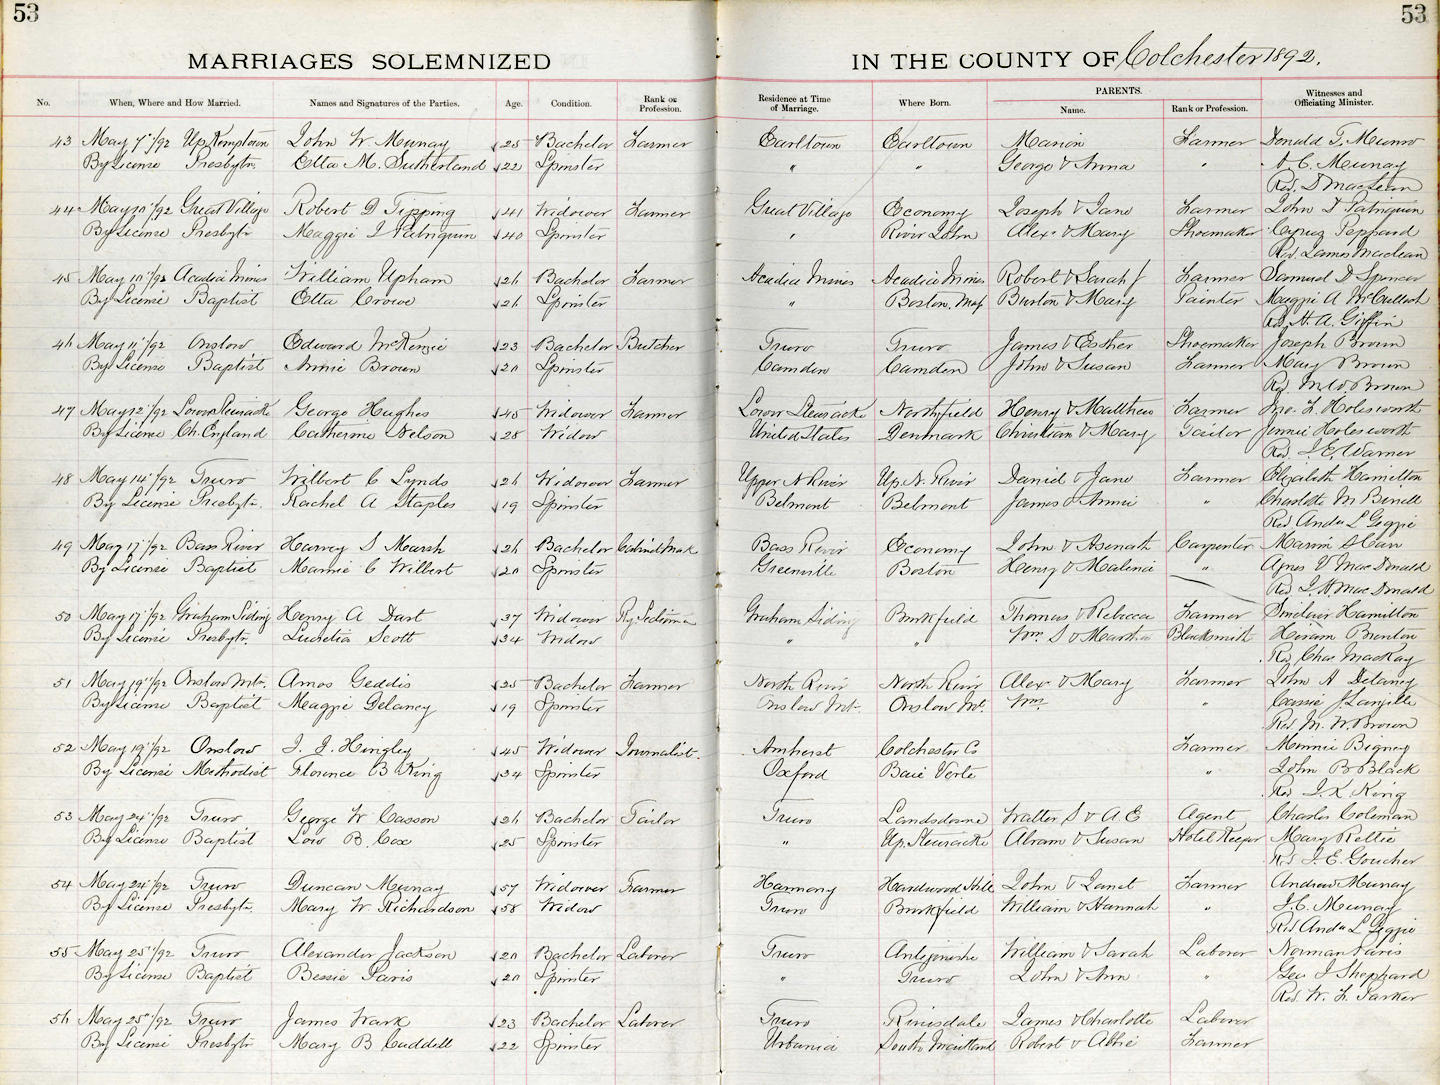 53 53
MARRIAGES SOLEMNIZED IN THE COUNTY OF Colchester 1892.
No. When, Where and How Married. Names and Signatures of the Parties. Age. Condition. Rank or Profession. Residence at Time of Marriage. Where Born. PARENTS. Name. Rank or Profession. Witnesses and Officiating Minister.
43 May 7"/92 Up Kemptown John W Murray 25 Bachelor Farmer Earltown Earltown Marion Farmer Donald F. Munro
By License Presbytn. Etta M. Sutherland 22 Spinster " " George & Anna " A C. Murray
Rev. D MacLean
44 May 10"/92 Great Village Robert D Tipping 41 Widower Farmer Great Village Economy Joseph & Jane Farmer John D Patriquin
By License Presbytn Maggie J Patriquin 40 Spinster " River John Alex. & Mary Shoemaker Cyrus Peppard
Rev. James Maclean
45 May 10"/92 Acadia Mines William Upham 26 Bachelor Farmer Acadia Mines Acadia Mines Robert & Sarah J Farmer Samuel D Spencer
By License Baptist Etta Crowe 26 Spinster " Boston. Mass Burton & Mary Painter Maggie A McCulloch
Rev. H. A. Giffin
46 May 11"/92 Onslow Edward McKenzie 23 Bachelor Butcher Truro Truro James & Esther Shoemaker Joseph Brown
By License Baptist Annie Brown 20 Spinster Camden Camden John & Susan Farmer Mary Brown
Rev. M. W. Brown
47 May 12"/92 Lower Stewiacke George Hughes 45 Widower Farmer Lower Stewiacke Northfield Henry & Matthew Farmer Jno. F. Holesworth
By License Ch. England Catherine Nelson 28 Widow United States Denmark Christian & Mary Tailor Jennie Holesworth
Rev. J. E. Warner
48 May 14"/92 Truro Wilbert C Lynds 26 Widower Farmer Upper N River Up N. River Daniel & Jane Farmer Elizabeth Hamilton
By License Presbytn. Rachel A Staples 19 Spinster Belmont Belmont James & Annie " Charlotte M
Rev Andw L Geggie
49 May 17"/92 Bass River Harvey S Marsh 26 Bachelor Cabinet Mak Bass River Economy John & Asenath Carpenter
By License Baptist Mamie C Wilbert 20 Spinster Greenville Boston Henry & Malina " Agnes V MacDonald
Rev. J. H MacDonald
50 May 17"/92 Graham Siding Henry A Dart 37 Widower Ry Sectionman Graham Siding Brookfield Thomas & Rebecca Farmer Sinclair Hamilton
By License Presbytn. Lucretia Scott 34 Widow " " Wm. S & Martha Blacksmith Hiram Brenton
Rev Chas MacKay
51 May 19"/92 Onslow Mt. Amos Geddis 25 Bachelor Farmer North River North River Alex. & Mary Farmer John A Delaney
By License Baptist Maggie Delaney 19 Spinster Onslow Mt. Onslow Mt. Wm. " Cassie J Langille
Rev M. W. Brown
52 May 19"/92 Onslow J. J. Hingley 45 Widower Journalist. Amherst Colchester Co Farmer Minnie Bigney
By License Methodist Florence B King 34 Spinster Oxford Baie Verte " John B Black
Rev J. K. King
53 May 24"/92 Truro George W Casson 26 Bachelor Tailor Truro Lansdowne Walter S & A E Agent Charles Coleman
By License Baptist Low B. Cox 25 Spinster " Up. Stewiacke Abram & Susan Hotel Keeper Mary Rettie
Rev J. E. Goucher
54 May 24"/92 Truro Duncan Murray 57 Widower Farmer Harmony Hardwood Hill John & Janet Farmer Andrew Murray
By License Presbytn. Mary W. Richardson 58 Widow Truro Brookfield William & Hannah " J. C. Murray
Rev Andw L Geggie
55 May 25"/92 Truro Alexander Jackson 20 Bachelor Laborer Truro Antigonishe William & Sarah Laborer Norman Paris
By License Baptist Bessie Paris 20 Spinster " Truro John & Ann " Geo J Shephard
Rev. W. F. Parker
56 May 25"/92 Truro James Wark 23 Bachelor Laborer Truro Riversdale James & Charlotte Laborer
By License Presbytn Mary B Caddell 22 Spinster Urbania South Maitland Robert & Abbie Farmer